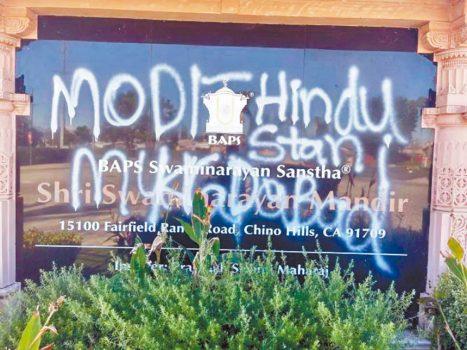 MODI Hindu
BAPS
Stan
BAPS Swaminarayan Sanstha®
Shri Swaminarayan Mandir
15100 Fairfield Ranch Road, Chino Hills, CA 91709
Maharaj